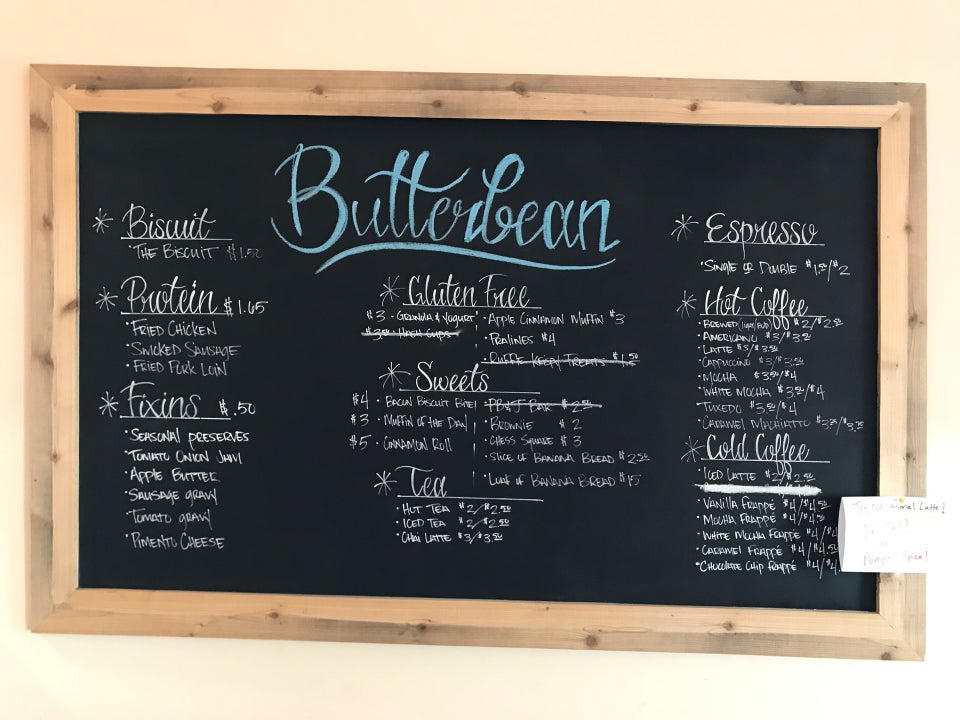 Butterbean
Biscuit
• The Biscuit $1.50
Protein $1.65
• Fried Chicken
• Smoked Sausage
• Fried Pork Loin
Fixins $.50
• Seasonal Preserves
• Tomato Onion Jam
• Apple Butter
• Sausage Gravy
• Tomato Gravy
• Pimento Cheese
Gluten Free
$3 • Granola & Yogurt
$3.50 • Hash Cups
• Apple Cinnamon Muffin $3
• Pralines $4
Krispy Treats $1.50
Sweets
$4 • Bacon Biscuit Bite!
$3 • Muffin of the Day!
$5 • Cinnamon Roll
• PB&J Bar $2.50
• Brownie $2
• Chess Square $3
• Slice of Banana Bread $2.50
• Loaf of Banana Bread $15
Tea
• Hot Tea $2/$2.50
• Iced Tea $2/$2.50
• Chai Latte $3/$3.50
Espresso
• Single or Double $1.50/$2
Hot Coffee
• Brewed $2/$2.50
• Americano $3/$3.50
• Latte $3/$3.50
• Cappuccino $3/$3.50
• Mocha $3.50/$4
• White Mocha $3.50/$4
• Tuxedo $3.50/$4
• Caramel Machiatto
Cold Coffee
Iced Latte $2/$2.50
• Vanilla Frappé $4/$4.50
• Mocha Frappé $4/$4.50
• White Mocha Frappé $4/$4.
• Caramel Frappé $4/$4.50
• Chocolate Chip Frappé $4/$4.
Try our seasonal Latte!
Pumpkin Spice!